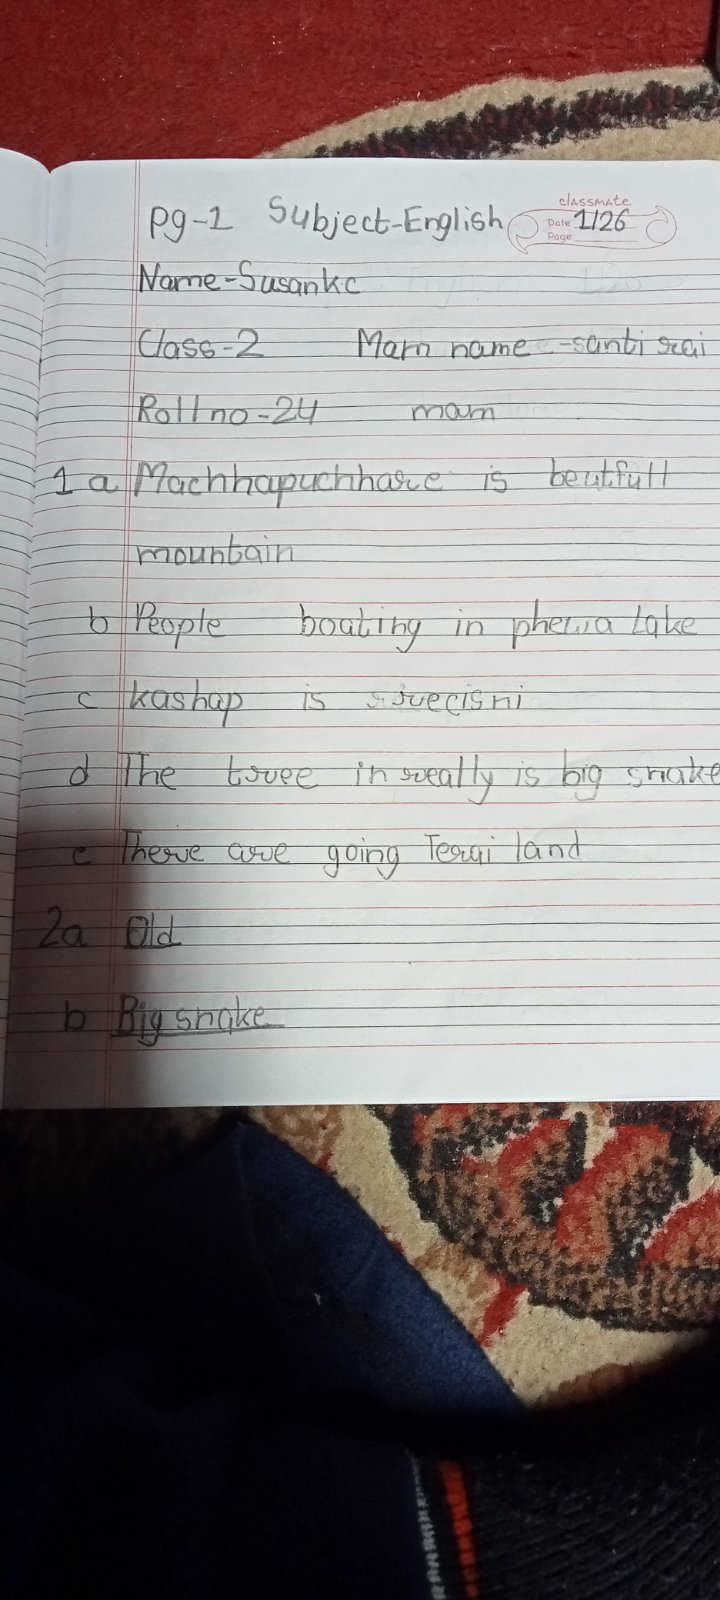 pg-1 Subject-English
classmate
Date 1/26
Page
Name-Susankc
Class-2 Mam name -santi rai
Roll no-24 mam
1 a Machhapuchhare is beutfull
mountain
b People boating in phewa Lake
c kashap is
d The tree in really is big snake
e There are going Terai land
2a Old
b Big snake